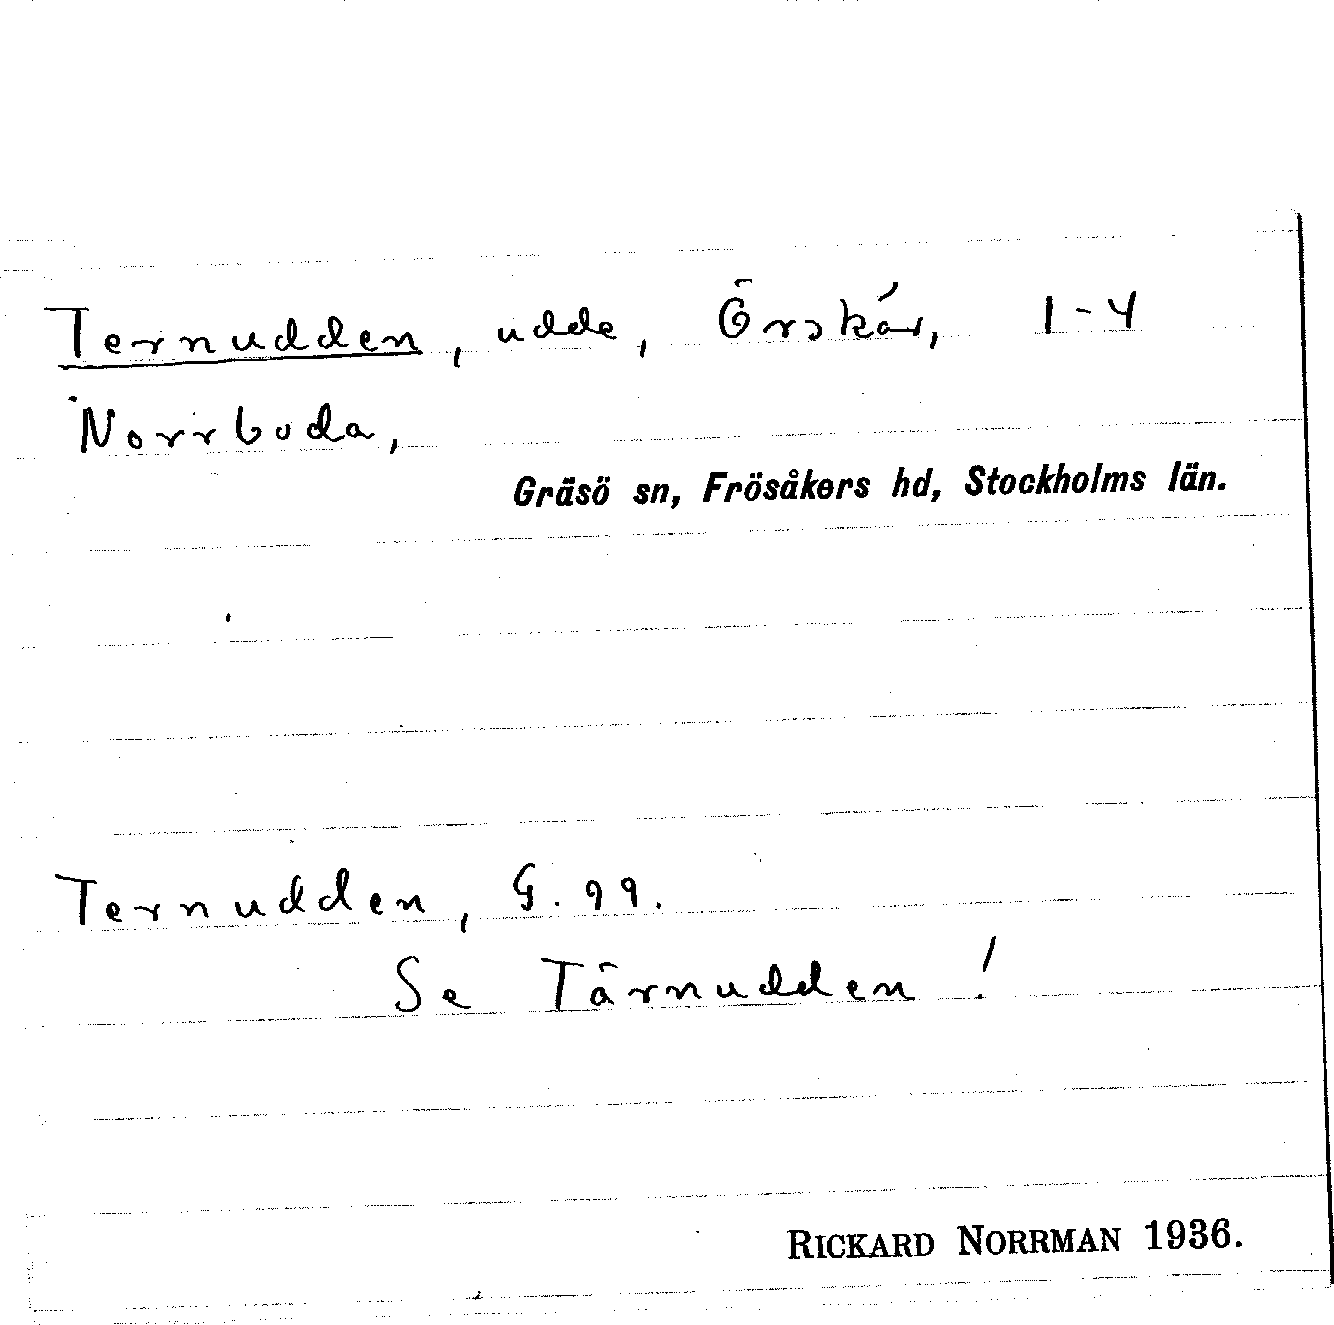 Ternudden, udde, Örskär, 1-4
Norrboda,
Gräsö sn, Frösåkers hd, Stockholms län.
Ternudden, G. 99.
Se Tärnudden!
RICKARD NORRMAN 1936.